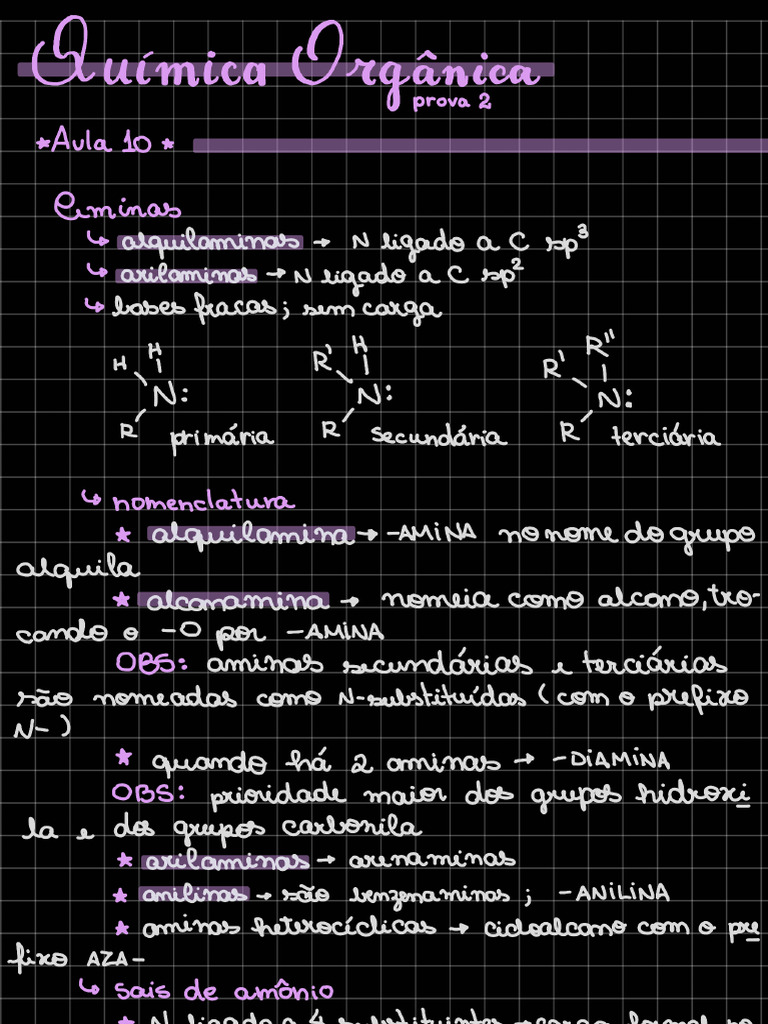 Química Orgânica
prova 2
*Aula 10 *
Aminas
↳ alquilaminas → N ligado a C sp³
↳ arilaminas → N ligado a C sp²
↳ bases fracas; sem carga
H H R' H R' R''
N: N: N:
R primária R secundária R terciária
↳ nomenclatura
* alquilamina → -AMINA no nome do grupo
alquila
* alcanamina → nomeia como alcano, tro-
cando o -O por -AMINA
OBS: aminas secundárias e terciárias
são nomeadas como N-substituídas (com o prefixo
N-)
* quando há 2 aminas → -DIAMINA
OBS: prioridade maior dos grupos hidroxi
la e dos grupos carbonila
* arilaminas → arenaminas
* anilinas → são benzenaminas ; -ANILINA
* aminas heterocíclicas → cicloalcano com o pre
fixo AZA-
↳ sais de amônio
* N ligado a 4 substituintes → carga formal no